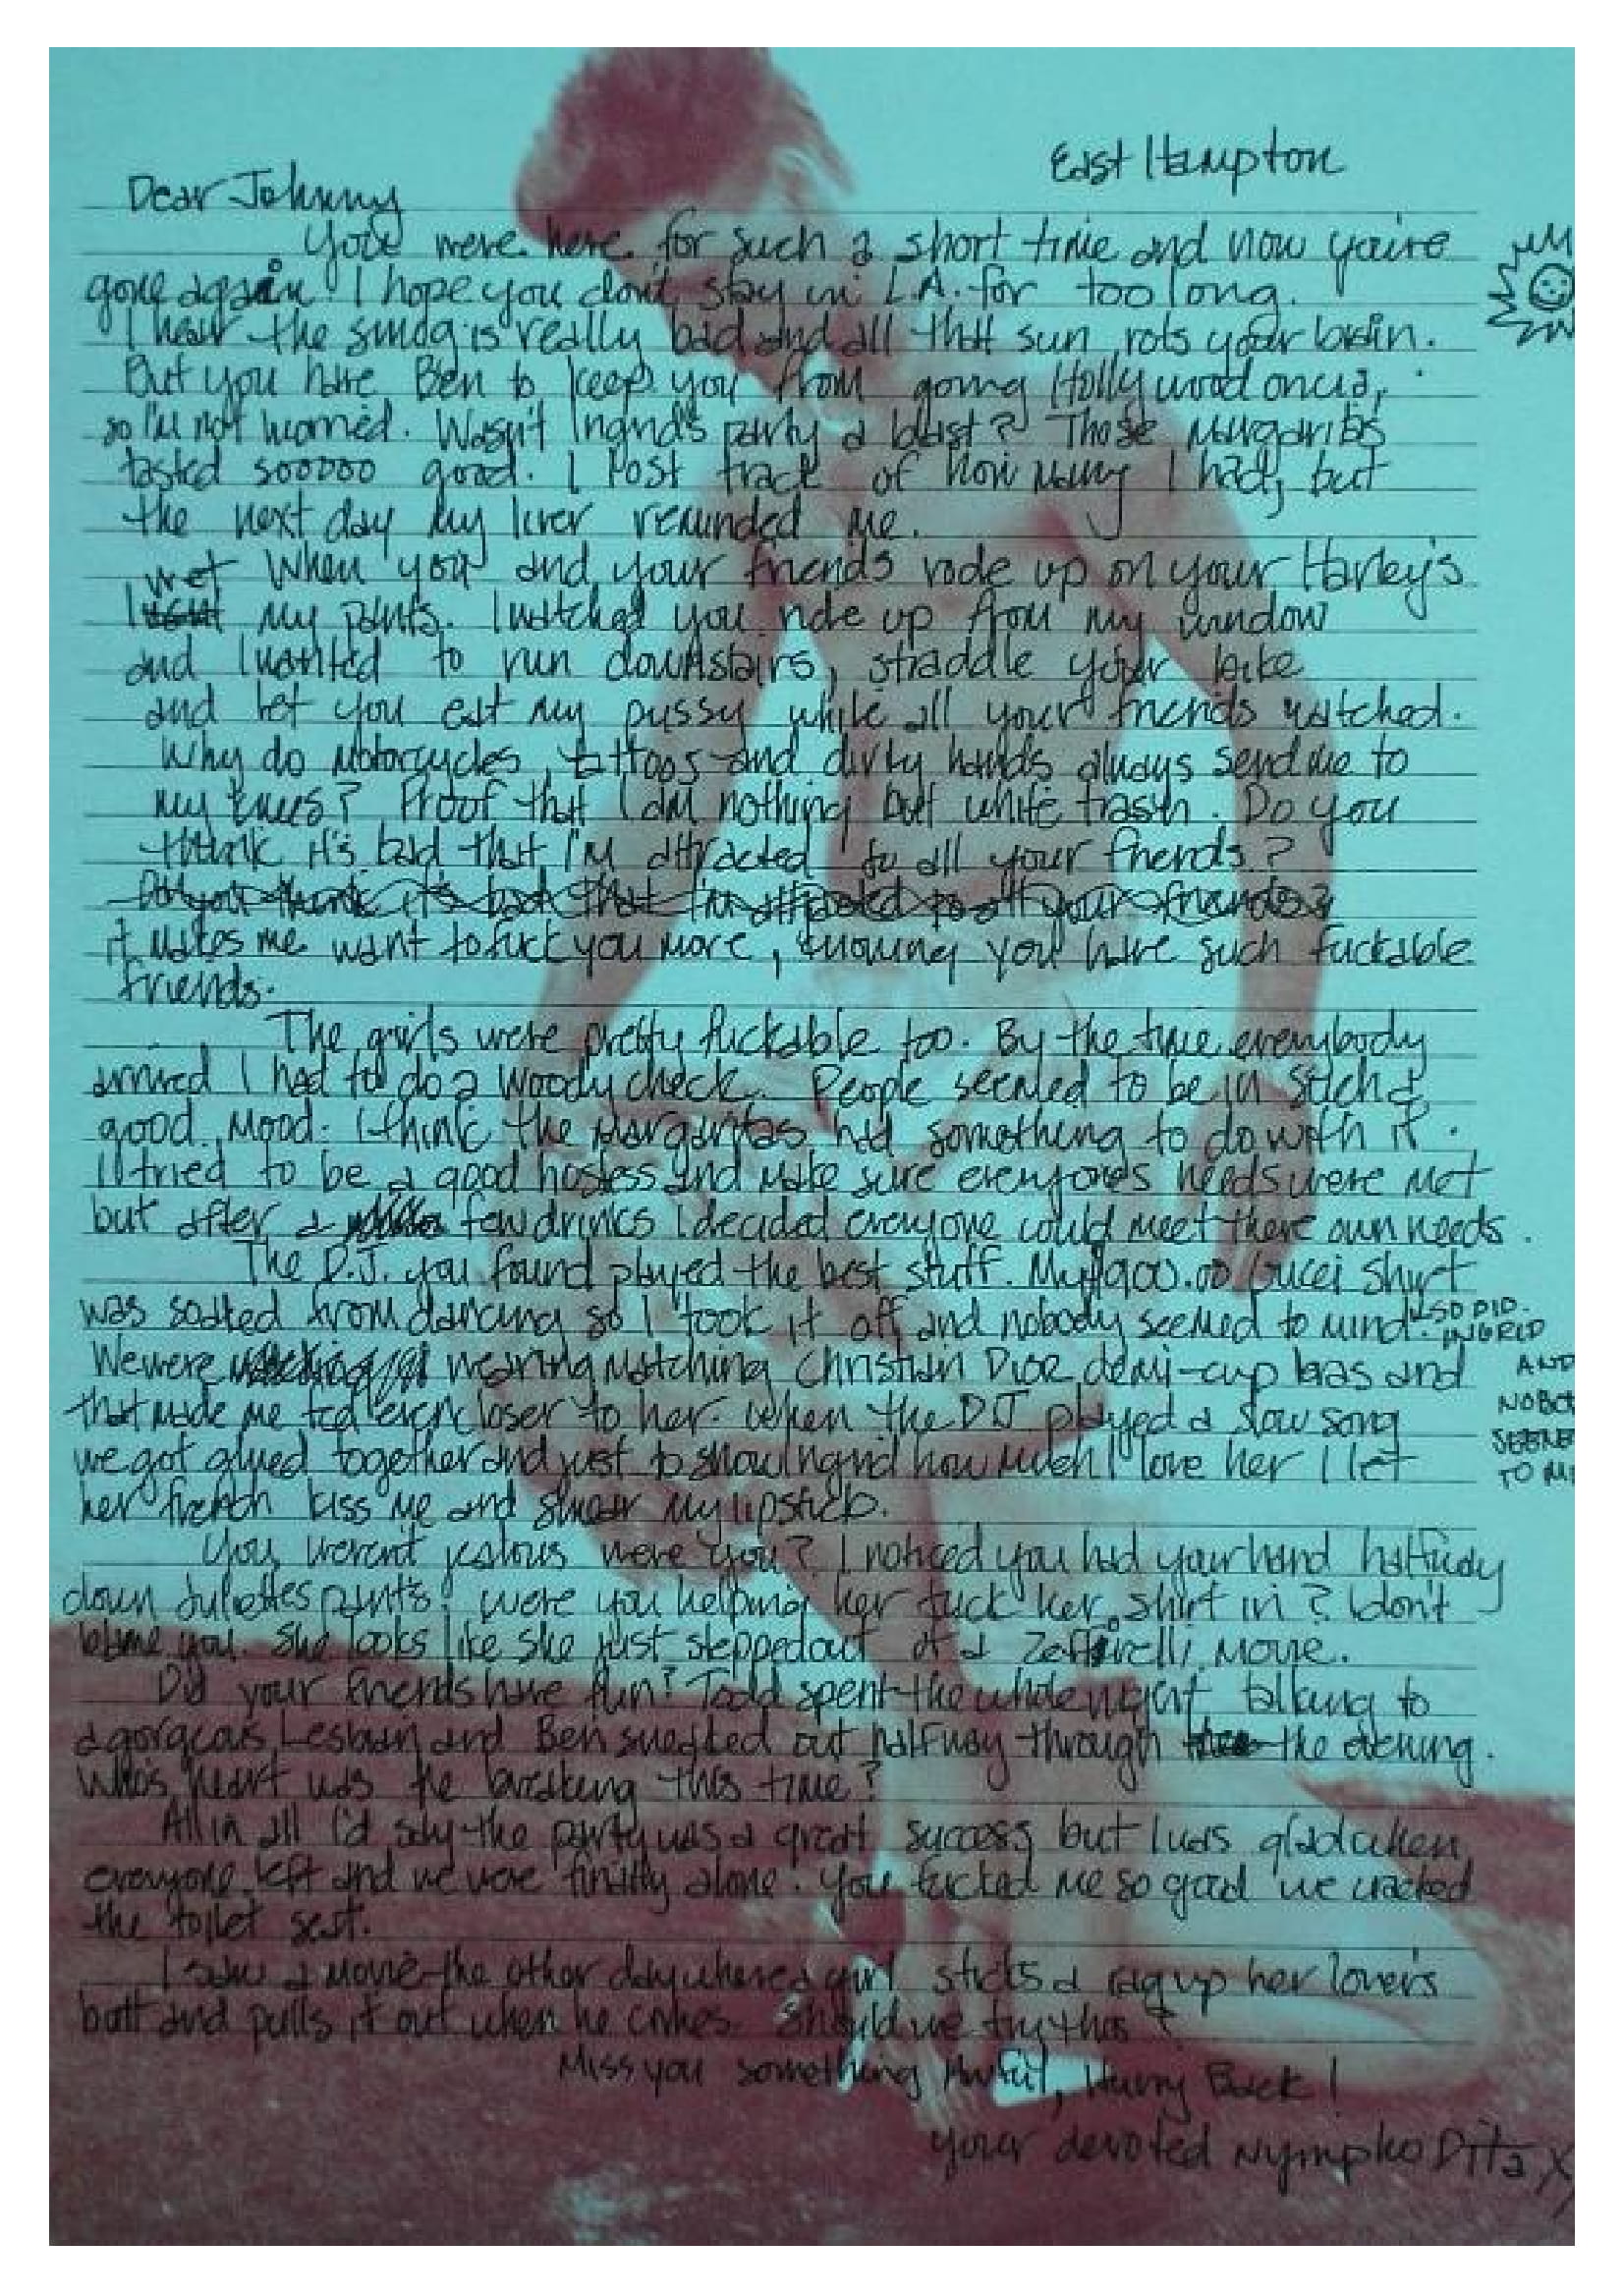 East Hampton
Dear Johnny
You were here for such a short time and now you're
gone again. I hope you don't stay in L.A. for too long.
I hear the smog is really bad and all that sun rots your brain.
But you have Ben to keep you from going Hollywood on us,
so I'm not worried. Wasn't Ingrid's party a blast? Those Margaritas
tasted sooooo good. I lost track of how many I had, but
the next day my liver reminded me.
When you and your friends rode up on your Harley's
I wet my pants. I watched you ride up from my window
and I wanted to run downstairs, straddle your bike
and let you eat my pussy while all your friends watched.
Why do motorcycles, tattoos and dirty hands always send me to
my knees? Proof that I am nothing but white trash. Do you
think it's bad that I'm attracted to all your friends?
Do you think it's bad that I'm attracted to all your friends?
it makes me want to fuck you more, knowing you have such fuckable
friends.
The girls were pretty fuckable too. By the time everybody
arrived I had to do a woody check. People seemed to be in such a
good mood. I think the Margaritas had something to do with it.
I tried to be a good hostess and make sure everyone's needs were met
but after a few drinks I decided everyone could meet there own needs.
The D.J. you found played the best stuff. My $900.00 Gucci shirt
was soaked from dancing so I took it off and nobody seemed to mind.
SO DID
INGRID
AND
NOBO
SEEME
TO MI
We were wearing matching Christian Dior demi-cup bras and
that made me feel even closer to her. When the DJ played a slow song
we got glued together and just to show Ingrid how much I love her I let
her french kiss me and smear my lipstick.
You weren't jealous were you? I noticed you had your hand halfway
down Juliettes pants. were you helping her tuck her shirt in? I don't
blame you. She looks like she just stepped out of a Zeffirelli movie.
Did your friends have fun? Todd spent the whole night talking to
a gorgeous Lesbian and Ben sneaked out halfway through the evening.
Who's heart was he breaking this time?
All in all I'd say the party was a great success but I was glad when
everyone left and we were finally alone. You fucked me so good we cracked
the toilet seat.
I saw a movie the other day where a girl sticks a rag up her lover's
butt and pulls it out when he comes. Should we try this?
Miss you something Awful, Hurry Back!
your devoted Nympho Dita X